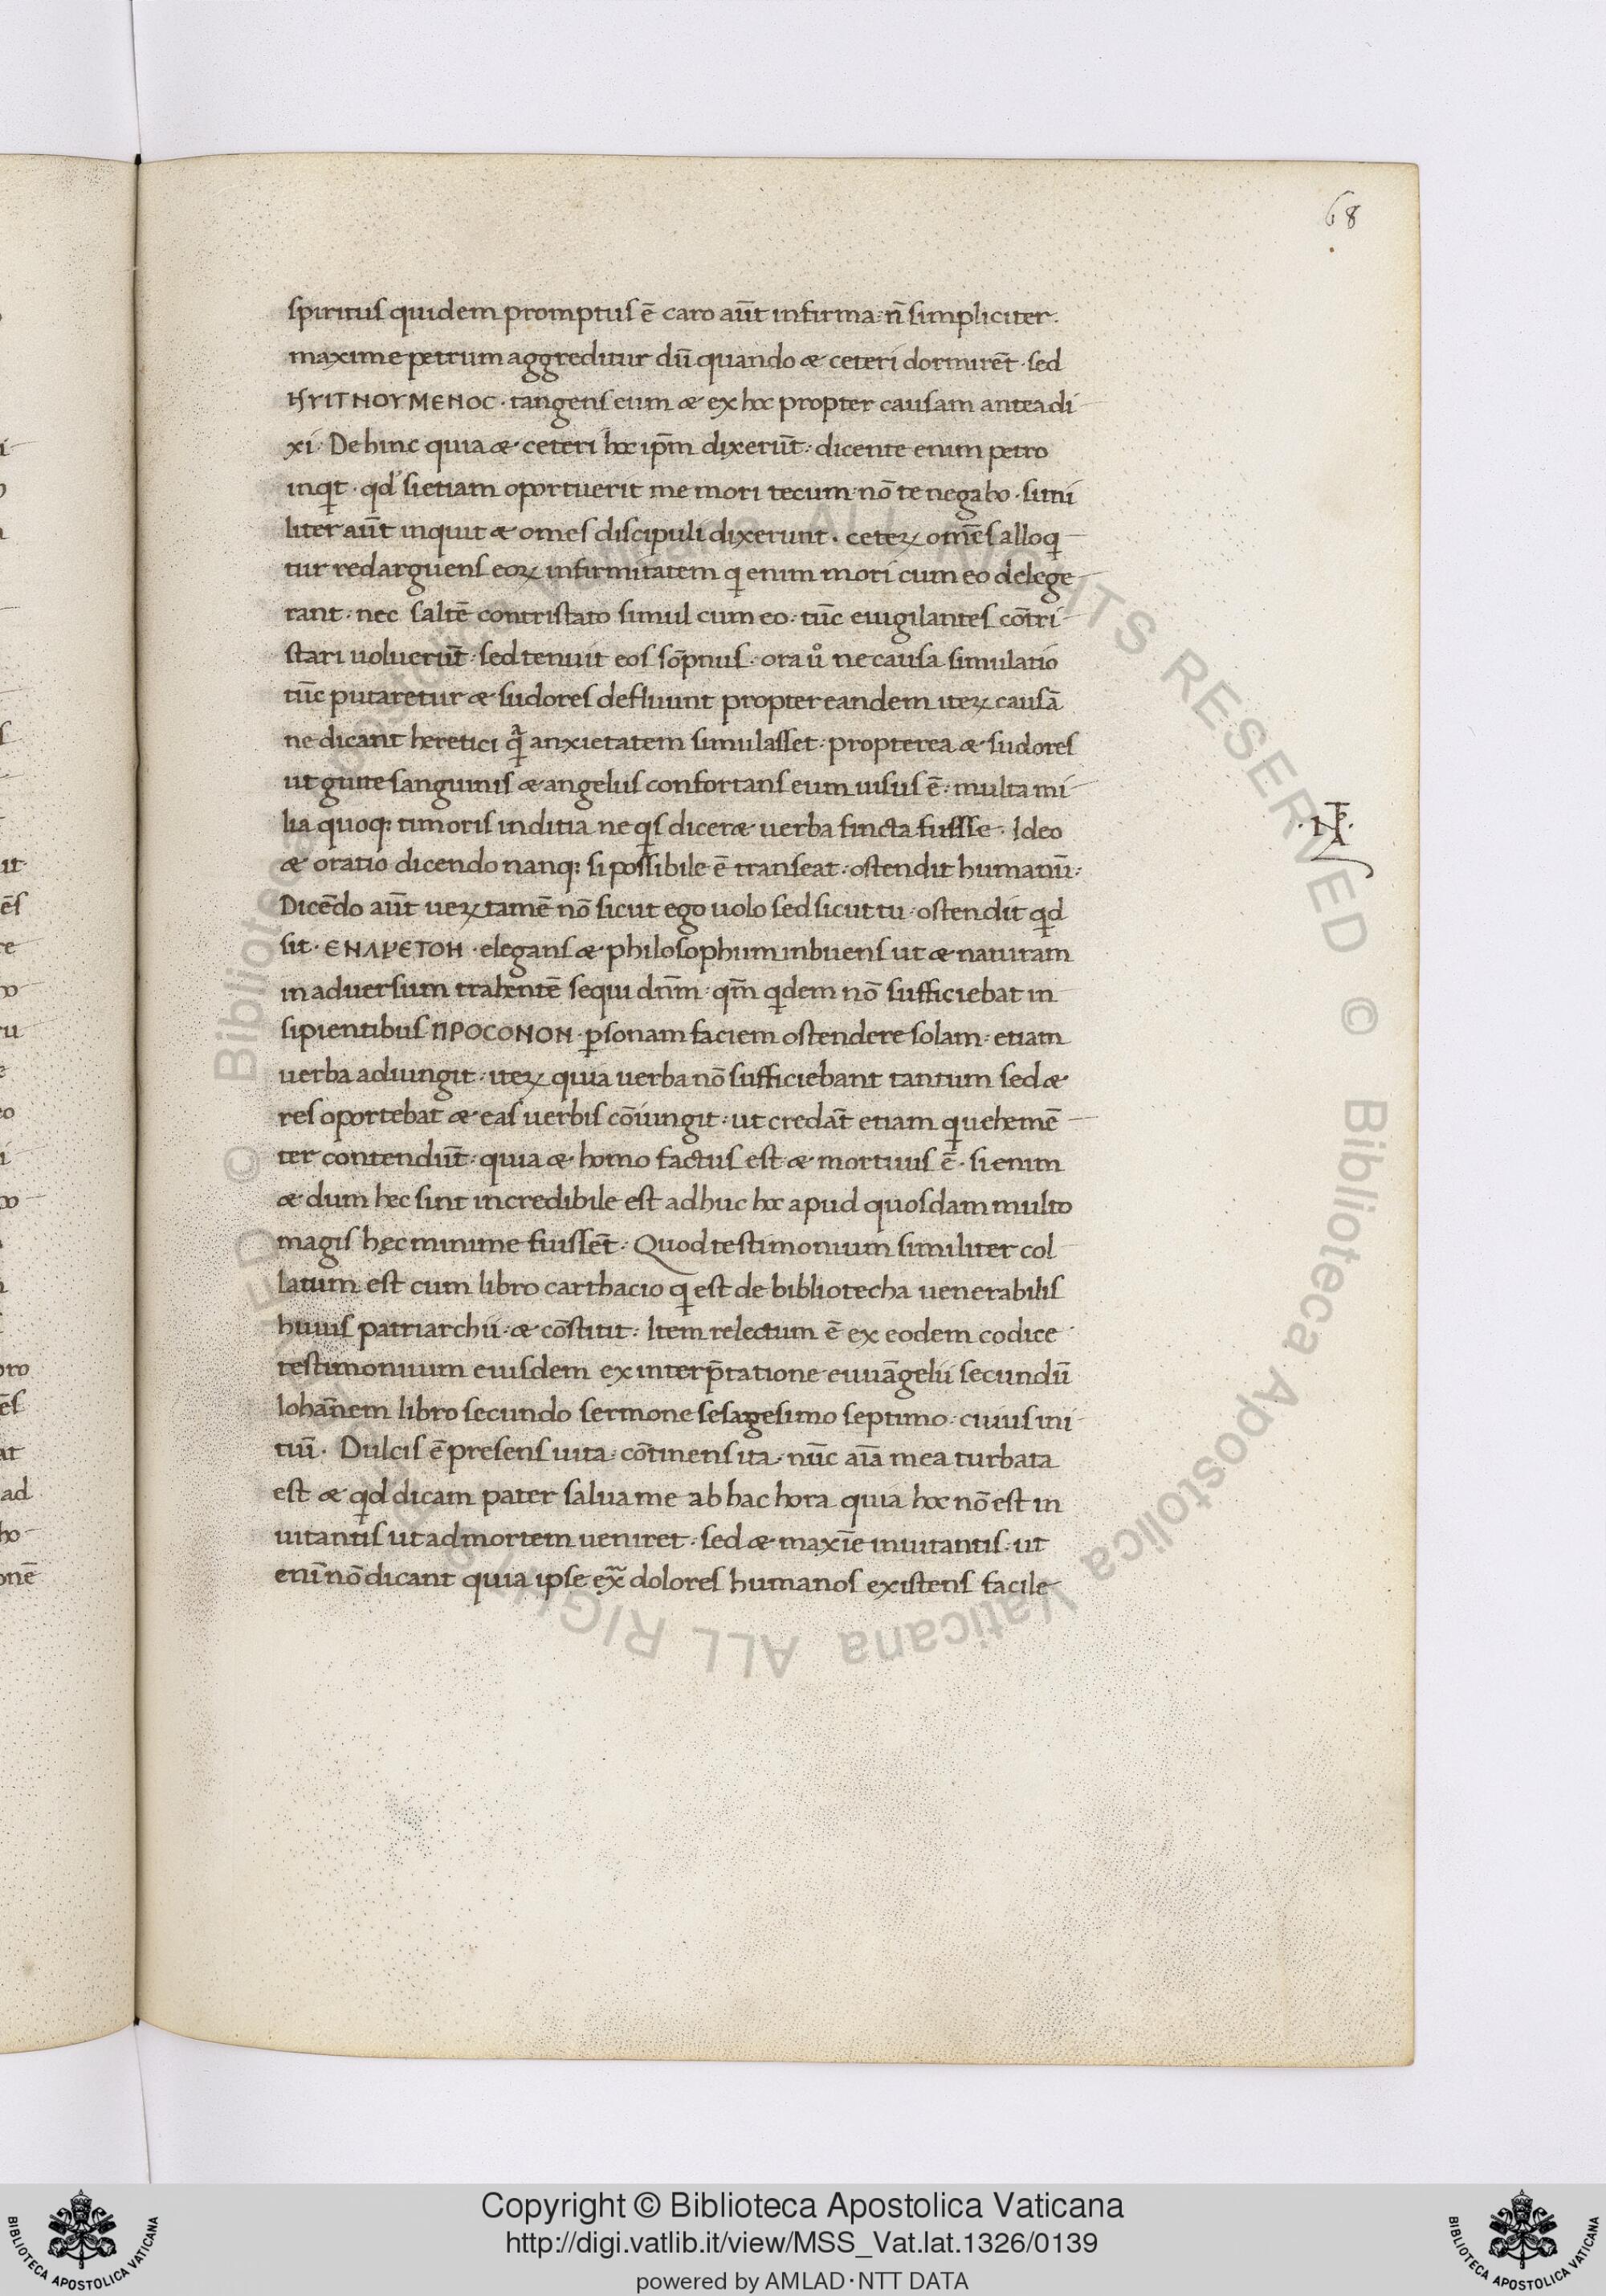 68
spiritus quidem promptus ē caro aūt infirma: n̄ simpliciter.
maxime petrum aggreditur dū quando & ceteri dormirēt · sed
ҤΥΙΤΝΟΥΜΕΝΟC · tangens eum & ex hoc propter causam antea di
xi · De hinc quia & ceteri hoc ip̄m dixerūt · dicente enim petro
inqt · qd' si etiam oportuerit me mori tecum nō te negabo · simi
liter aūt inquit & omes discipuli dixerunt · ceteꝝ om̄es alloq
tur redarguens eoꝝ infirmitatem q enim mori cum eo delege
rant · nec saltē contristato simul cum eo · tūc euigilantes cōtri
stari uoluerūt · sed tenuit eos sōpnus · ora uͦ ne causa simulatio
tūc putaretur & sudores defluunt propter eandem iteꝝ causā
ne dicant heretici qͣ anxietatem simulasset · propterea & sudores
ut gutte sanguinis & angelus confortans eum uisus ē · multa mi
lia quoq; timoris inditia ne qs dicer& uerba fincta fuisse · Ideo
& oratio dicendo nanq; si possibile ē transeat · ostendit humanū:
Dicēdo aūt ueꝝ tamē nō sicut ego uolo sed sicut tu · ostendit qd
sit · ΕΝΑΡΕΤΟΝ · elegans & philosophum inbuens ut & naturam
in aduersum trahentē sequi dn̄m · qm̄ qdem nō sufficiebat in
sipientibus ΠΡΟCΟΝΟΝ · ꝑsonam faciem ostendere solam · etiam
uerba adiungit · iteꝝ quia uerba nō sufficiebant tantum sed &
res oportebat & eas uerbis cōiungit · ut credāt etiam q uehemē
ter contendūt · quia & homo factus est & mortuus ē · si enim
& dum hec sint incredibile est adhuc hoc apud quosdam multo
magis hęc minime fuissēt · Quod testimonium similiter col
latum est cum libro carthacio q est de bibliotecha uenerabilis
huius patriarchii · & cōstitit · Item relectum ē ex eodem codice
testimonium eiusdem ex interp̄tatione euuāgelii secundū
Iohānem libro secundo sermone sesagesimo septimo · cuius ini
tiū · Dulcis ē presens uita · cōtinens ita · nūc aīa mea turbata
est & qd dicam pater salua me ab hac hora quia hoc nō est in
uitantis ut ad mortem ueniret · sed & maxīe inuitantis · ut
enī nō dicant quia ipse ex̄ dolores humanos existens facile
Copyright © Biblioteca Apostolica Vaticana
http://digi.vatlib.it/view/MSS_Vat.lat.1326/0139
powered by AMLAD·NTT DATA